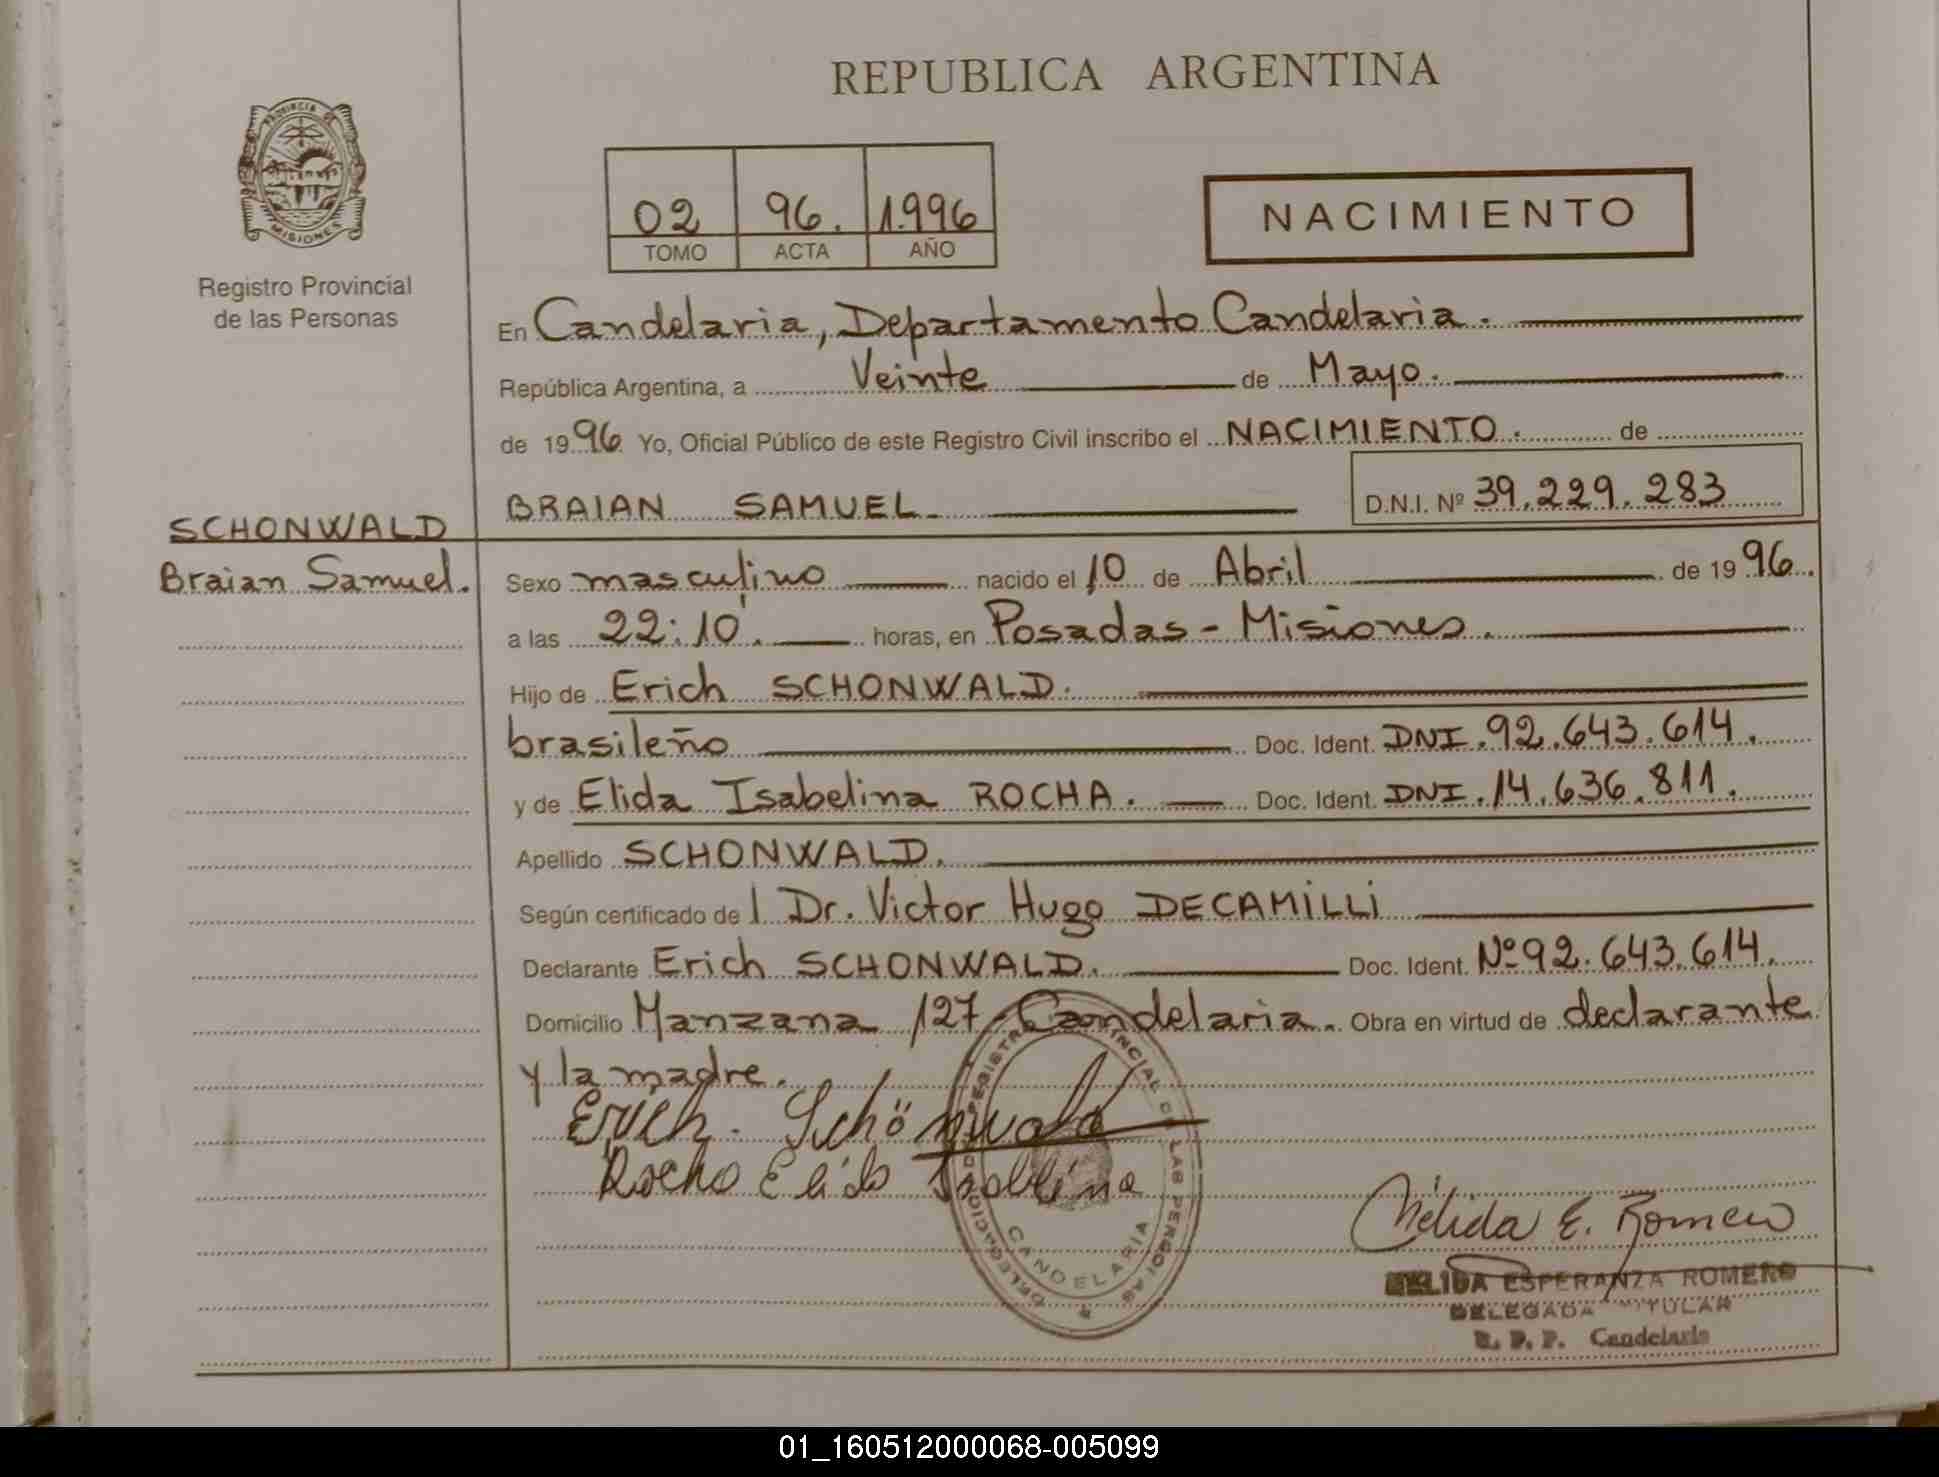 REPUBLICA ARGENTINA
PROVINCIA DE MISIONES
Registro Provincial
de las Personas
02 96. 1.996
TOMO ACTA AÑO
NACIMIENTO
En Candelaria, Departamento Candelaria.
República Argentina, a Veinte de Mayo.
de 1996 Yo, Oficial Público de este Registro Civil inscribo el NACIMIENTO. de
BRAIAN SAMUEL D.N.I. Nº 39.229.283
SCHONWALD
Braian Samuel.
Sexo masculino nacido el 10 de Abril de 1996.
a las 22:10'. horas, en Posadas - Misiones.
Hijo de Erich SCHONWALD.
brasileño Doc. Ident. DNI.92.643.614.
y de Elida Isabelina ROCHA. Doc. Ident. DNI.14.636.811.
Apellido SCHONWALD.
Según certificado de l Dr. Victor Hugo DECAMILLI
Declarante Erich SCHONWALD. Doc. Ident. Nº92.643.614.
Domicilio Manzana 127 Candelaria. Obra en virtud de declarante
y la madre.
Erich. Schönwald
Rocha Elida Isabelina
DELEGACION REGISTRO PROVINCIAL DE LAS PERSONAS
CANDELARIA
Nélida E. Romero
NELIDA ESPERANZA ROMERO
DELEGADA TITULAR
R. P. P. Candelaria
01_160512000068-005099